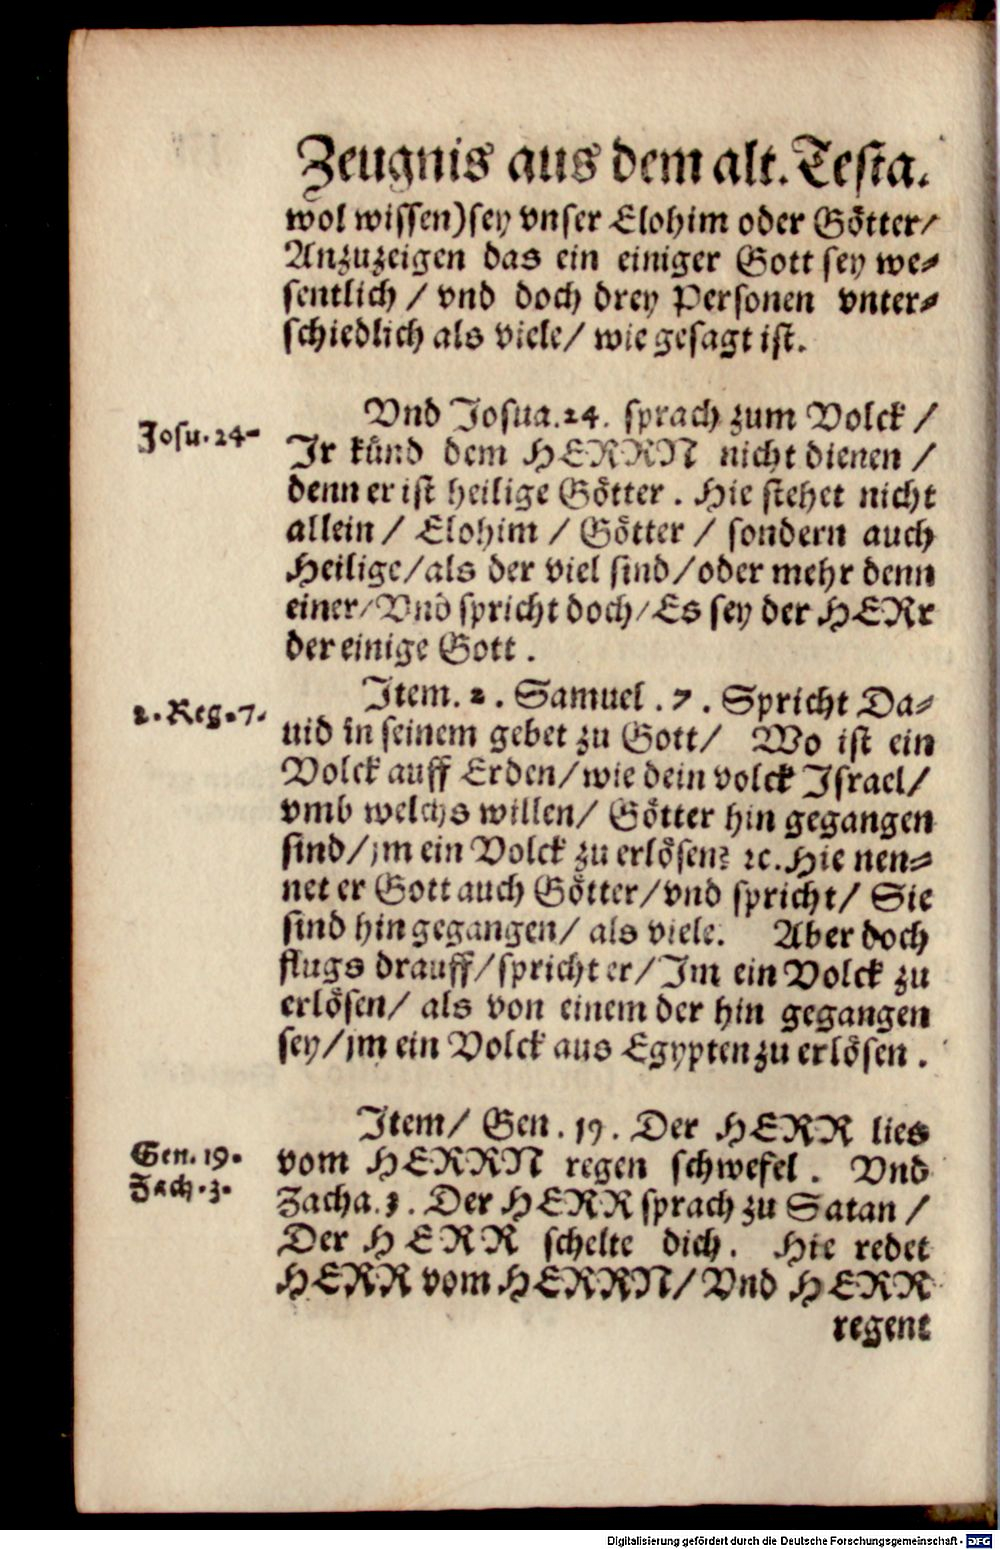 Zeugnis aus dem alt. Testa.
wol wissen) sey vnser Elohim oder Götter/
Anzuzeigen das ein einiger Gott sey we-
sentlich / vnd doch drey Personen vnter-
schiedlich als viele/ wie gesagt ist.
Josu. 24-
Vnd Josua. 24. sprach zum Volck /
Jr künd dem HERRN nicht dienen /
denn er ist heilige Götter. Hie stehet nicht
allein / Elohim / Götter / sondern auch
Heilige/als der viel sind/oder mehr denn
einer/Vnd spricht doch/Es sey der HERr
der einige Gott.
2. Reg. 7.
Jtem. 2. Samuel. 7. Spricht Da-
uid in seinem gebet zu Gott/ Wo ist ein
Volck auff Erden/wie dein volck Jsrael/
vmb welchs willen/ Götter hin gegangen
sind/jm ein Volck zu erlösen? ꝛc. Hie nen-
net er Gott auch Götter/vnd spricht/ Sie
sind hin gegangen/ als viele. Aber doch
flugs drauff/spricht er/Jm ein Volck zu
erlösen/ als von einem der hin gegangen
sey/jm ein Volck aus Egypten zu erlösen.
Gen. 19.
Zach. 3.
Jtem/ Gen. 19. Der HERR lies
vom HERRN regen schwefel. Vnd
Zacha. 3. Der HERR sprach zu Satan /
Der HERR schelte dich. Hie redet
HERR vom HERRN/ Vnd HERR
regent
Digitalisierung gefördert durch die Deutsche Forschungsgemeinschaft - DFG